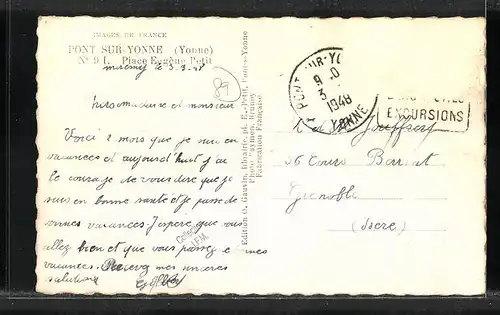 IMAGES DE FRANCE
PONT SUR-YONNE (Yonne)
N° 9 I. Place Eugène Petit
le 3.9.48
89
madame et monsieur
Voici 2 mois que je suis en
vacances et aujourd'huit j'ai
le courage de vous dire que je
suis en bonne santé et je passe de
bonnes vacances. J'espère que vous
allez bien et que vous passez de
vacances. Recevez mes sincères
salutions
Collect
I.P.M.
Edition O. Gauvin, librairie pl. E.-Petit, Pont-s-Yonne
Fabrication Française
PONT-SUR-YO
9
3
1948
YONNE
EXCURSIONS
M et Me Jouffrey
56 Cours Berriat
Grenoble
(Isère)